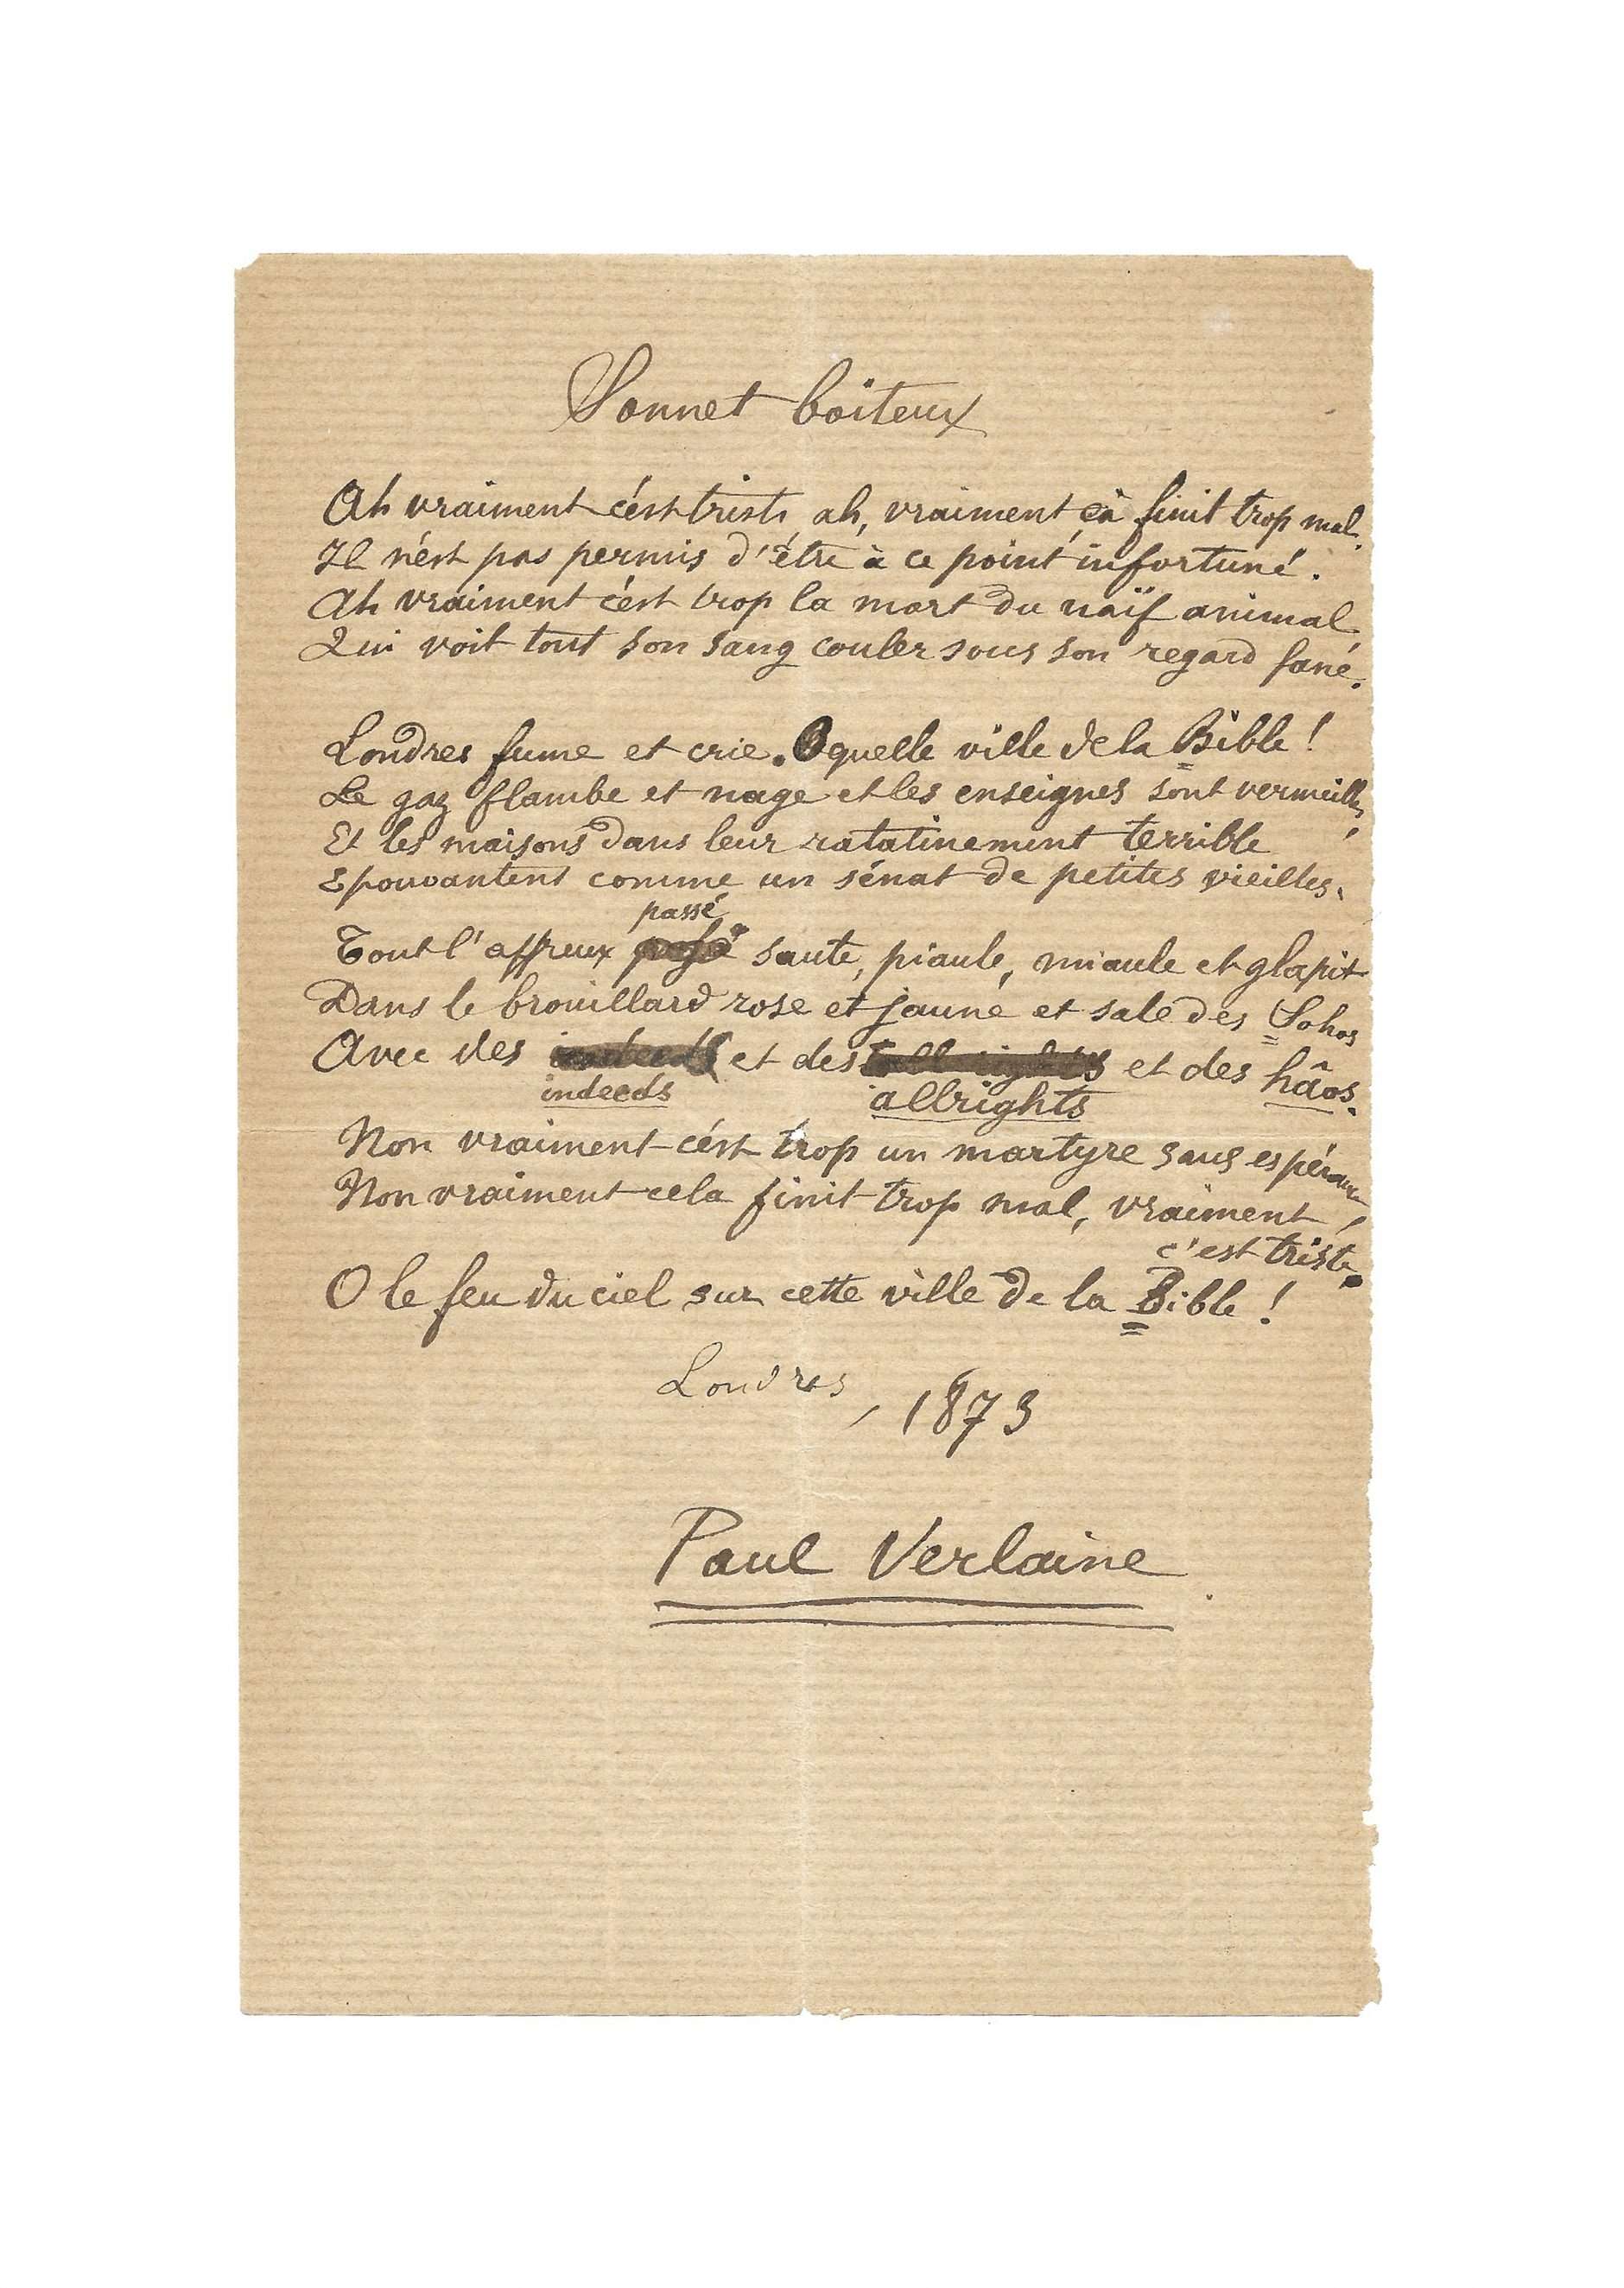 Sonnet boiteux
Ah vraiment c'est triste, ah, vraiment çà finit trop mal.
Il n'est pas permis d'être à ce point infortuné.
Ah vraiment c'est trop la mort du naïf animal
Qui voit tout son sang couler sous son regard fané.
Londres fume et crie. O quelle ville de la Bible !
Le gaz flambe et nage et les enseignes sont vermeilles,
Et les maisons dans leur ratatinement terrible
Epouvantent comme un sénat de petites vieilles.
passé
Tout l'affreux saute, piaule, miaule et glapit
Dans le brouillard rose et jaune et sale des Sohos
Avec des indeeds et des all rights et des hâos.
indeeds allrights
Non vraiment c'est trop un martyre sans espérance,
Non vraiment cela finit trop mal, vraiment
c'est triste.
O le feu du ciel sur cette ville de la Bible !
Londres, 1873
Paul Verlaine